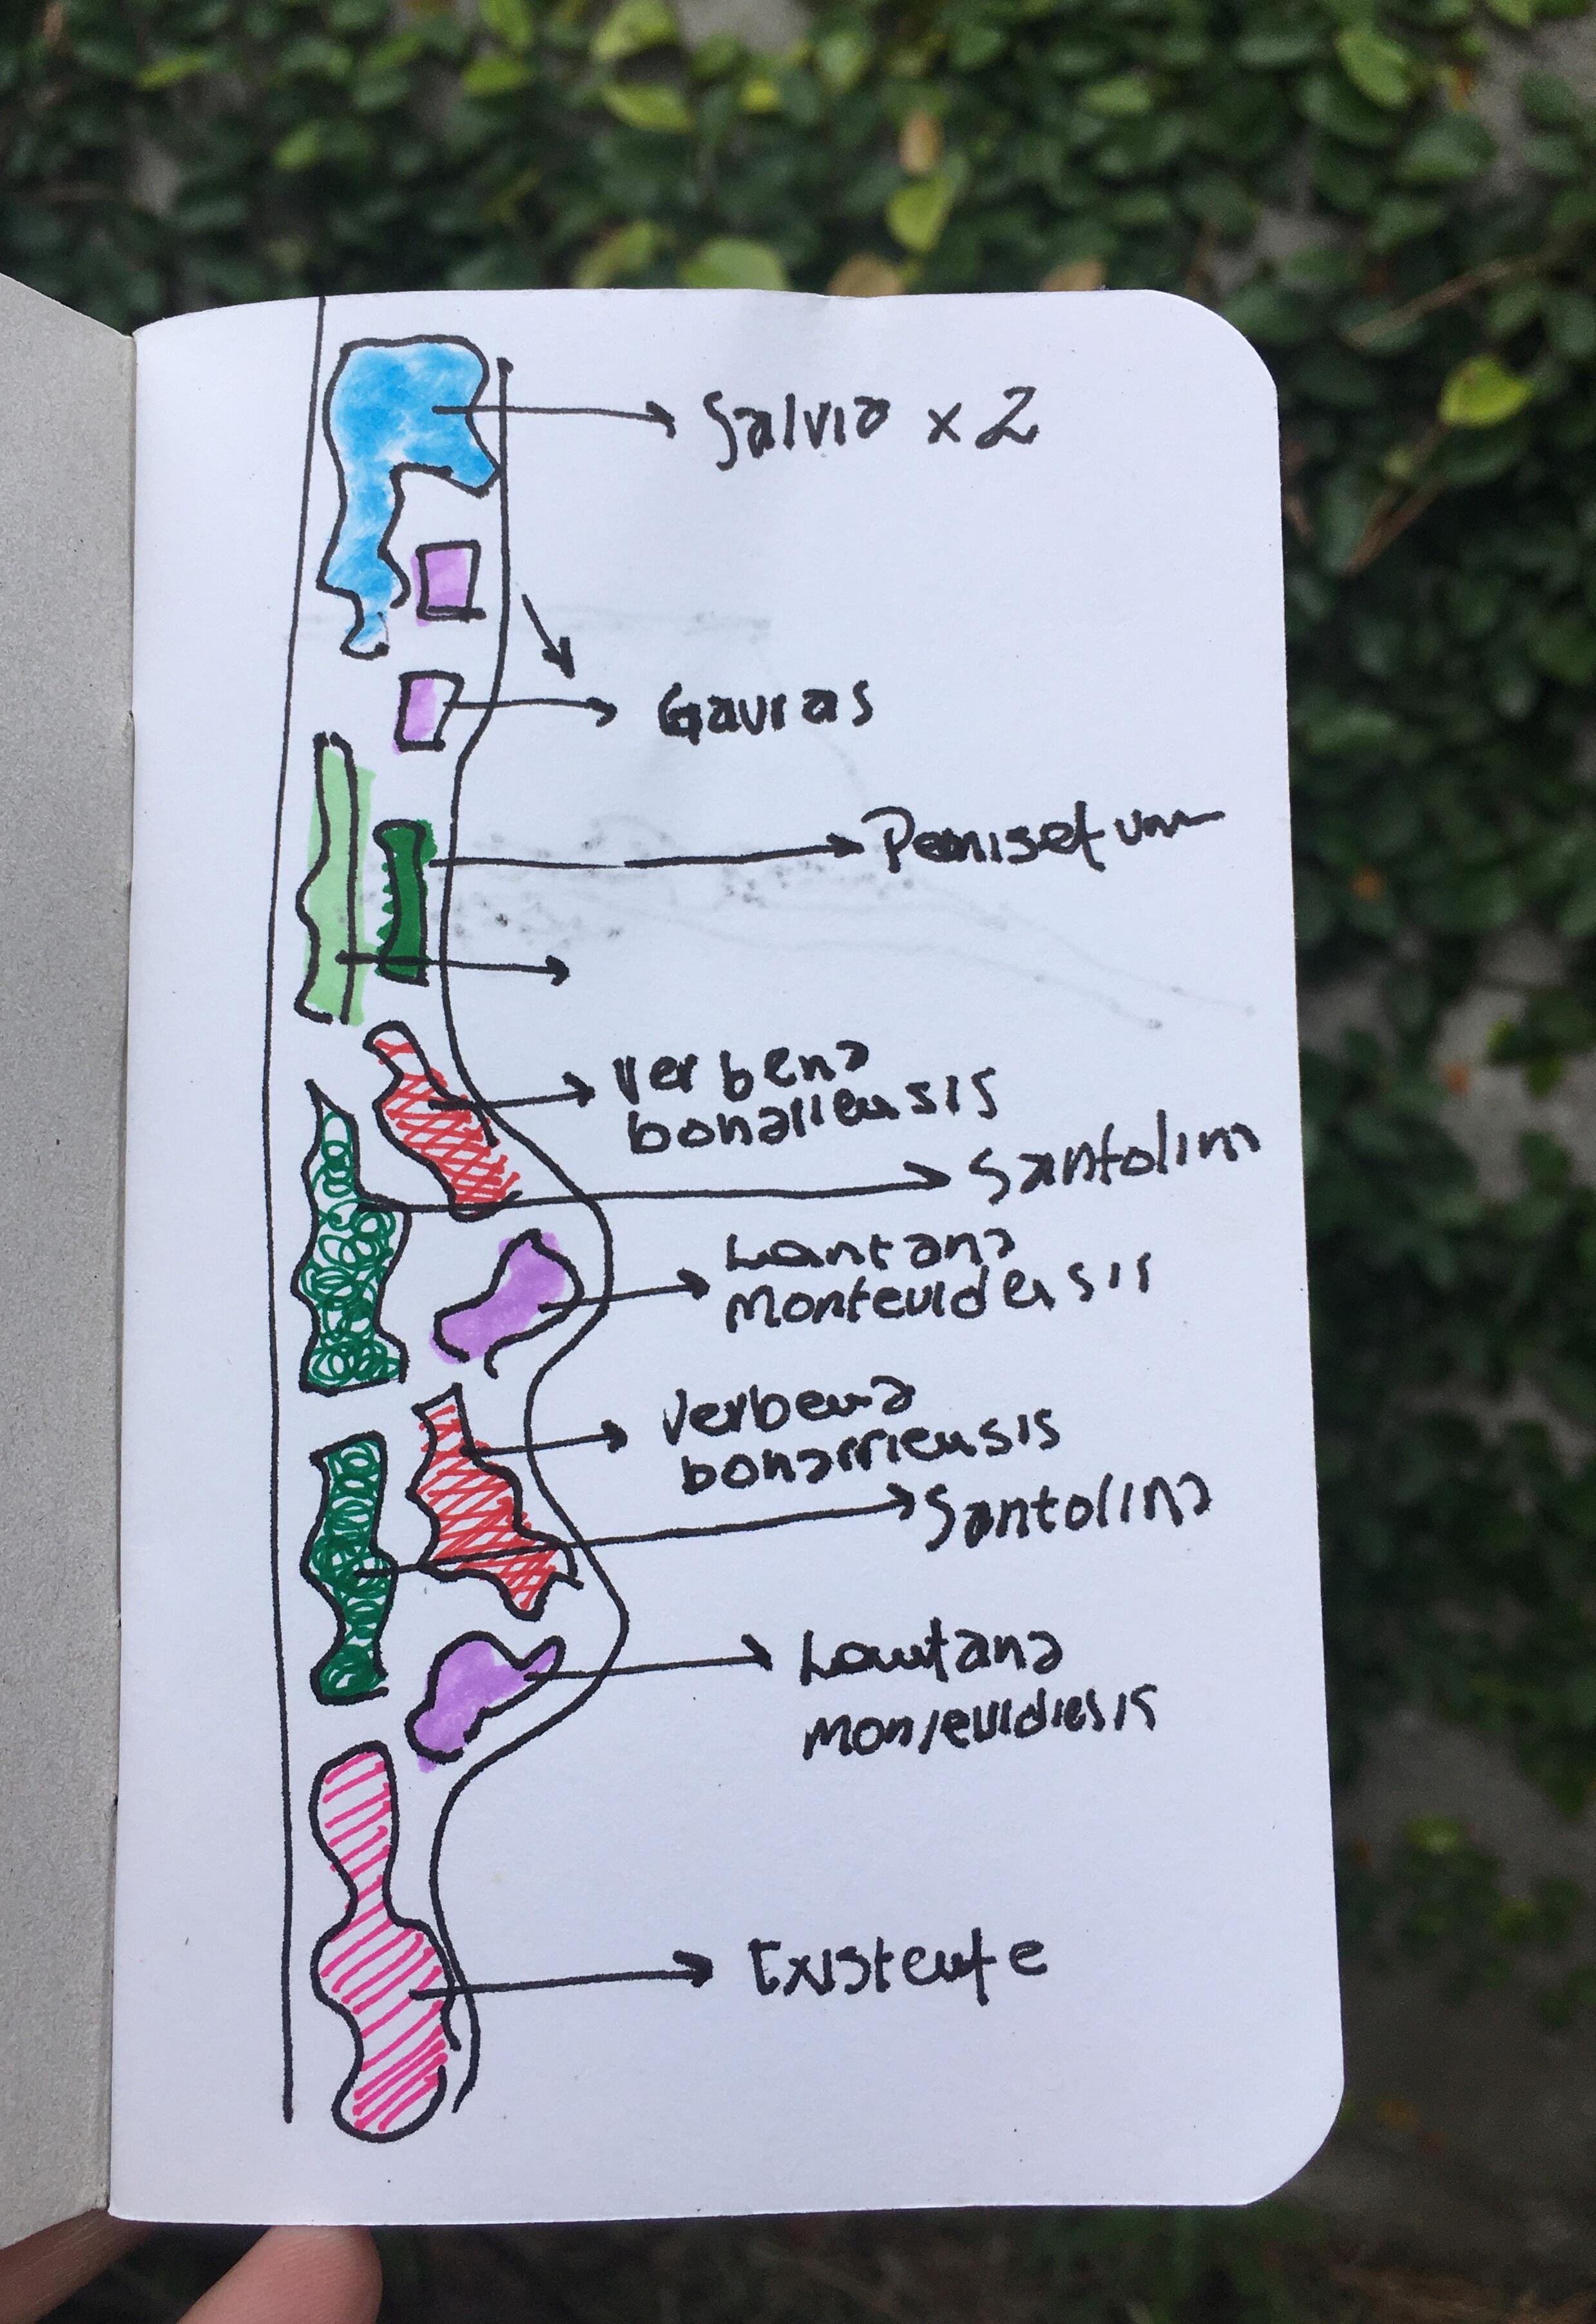 Salvia x 2
Gauras
Penisetum
Verbena
bonariensis
Santolina
Lantana
Montevidensis
Verbena
bonarriensis
Santolina
Lantana
Montevidiesis
Existente